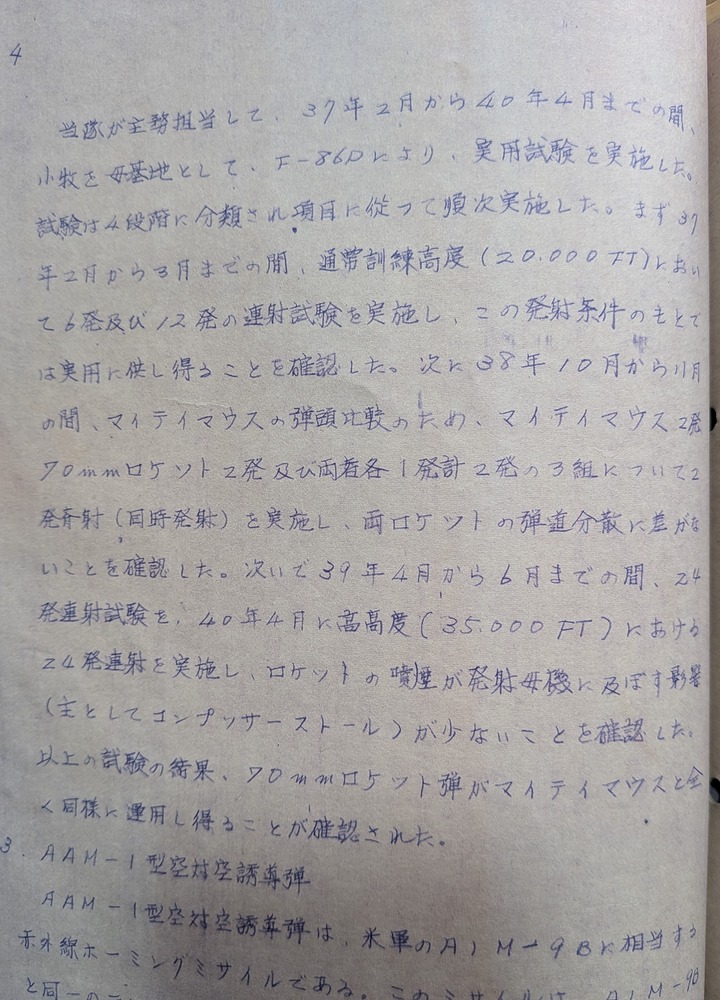 4
当隊が主務担当して、37年2月から40年4月までの間、
小牧を母基地として、F-86Dにより、実用試験を実施した。
試験は4段階に分類され項目に従つて順次実施した。まず37
年2月から3月までの間、通常訓練高度(20.000FT)におい
て6発及び12発の連射試験を実施し、この発射条件のもとで
は実用に供し得ることを確認した。次に38年10月から11月
の間、マイティマウスの弾頭比較のため、マイティマウス2発
70mmロケット2発及び両者各1発計2発の3組について2
発斉射(同時発射)を実施し、両ロケットの弾道分散に差がな
いことを確認した。次いで39年4月から6月までの間、24
発連射試験を、40年4月に高高度(35.000FT)における
24発連射を実施し、ロケットの噴煙が発射母機に及ぼす影響
(主としてコンプッサーストール)が少ないことを確認した。
以上の試験の結果、70mmロケット弾がマイティマウスと全
く同様に運用し得ることが確認された。
3. AAM-1型空対空誘導弾
AAM-1型空対空誘導弾は、米軍のAIM-9Bに相当する
赤外線ホーミングミサイルである。このミサイルは、AIM-9B
と同一の